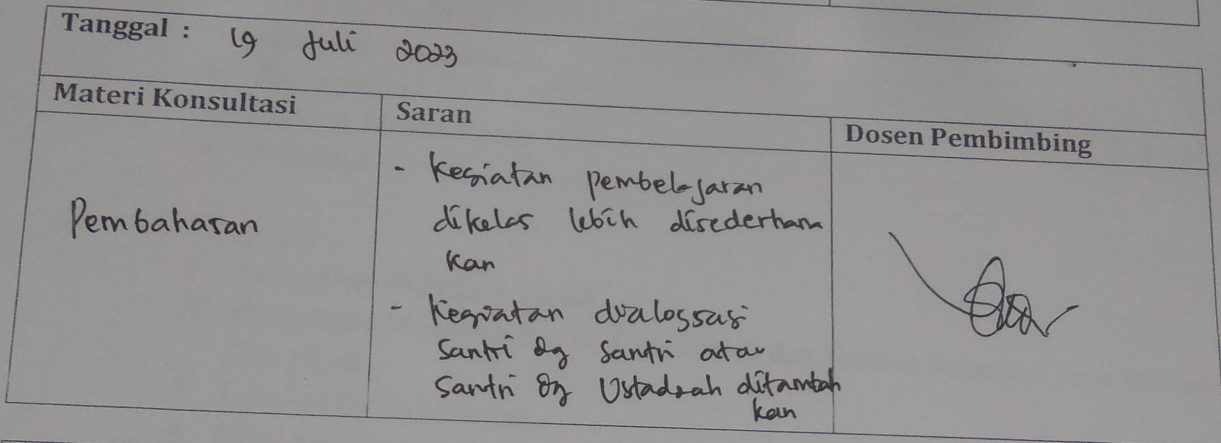 Tanggal : 19 Juli 2023
Materi Konsultasi
Saran
Dosen Pembimbing
Pembahasan
- Kegiatan pembelajaran
dikelas lebih disederhana
kan
- Kegiatan dialogsasi
Santri dg Santri atau
Santri dg Ustadzah ditambah
kan